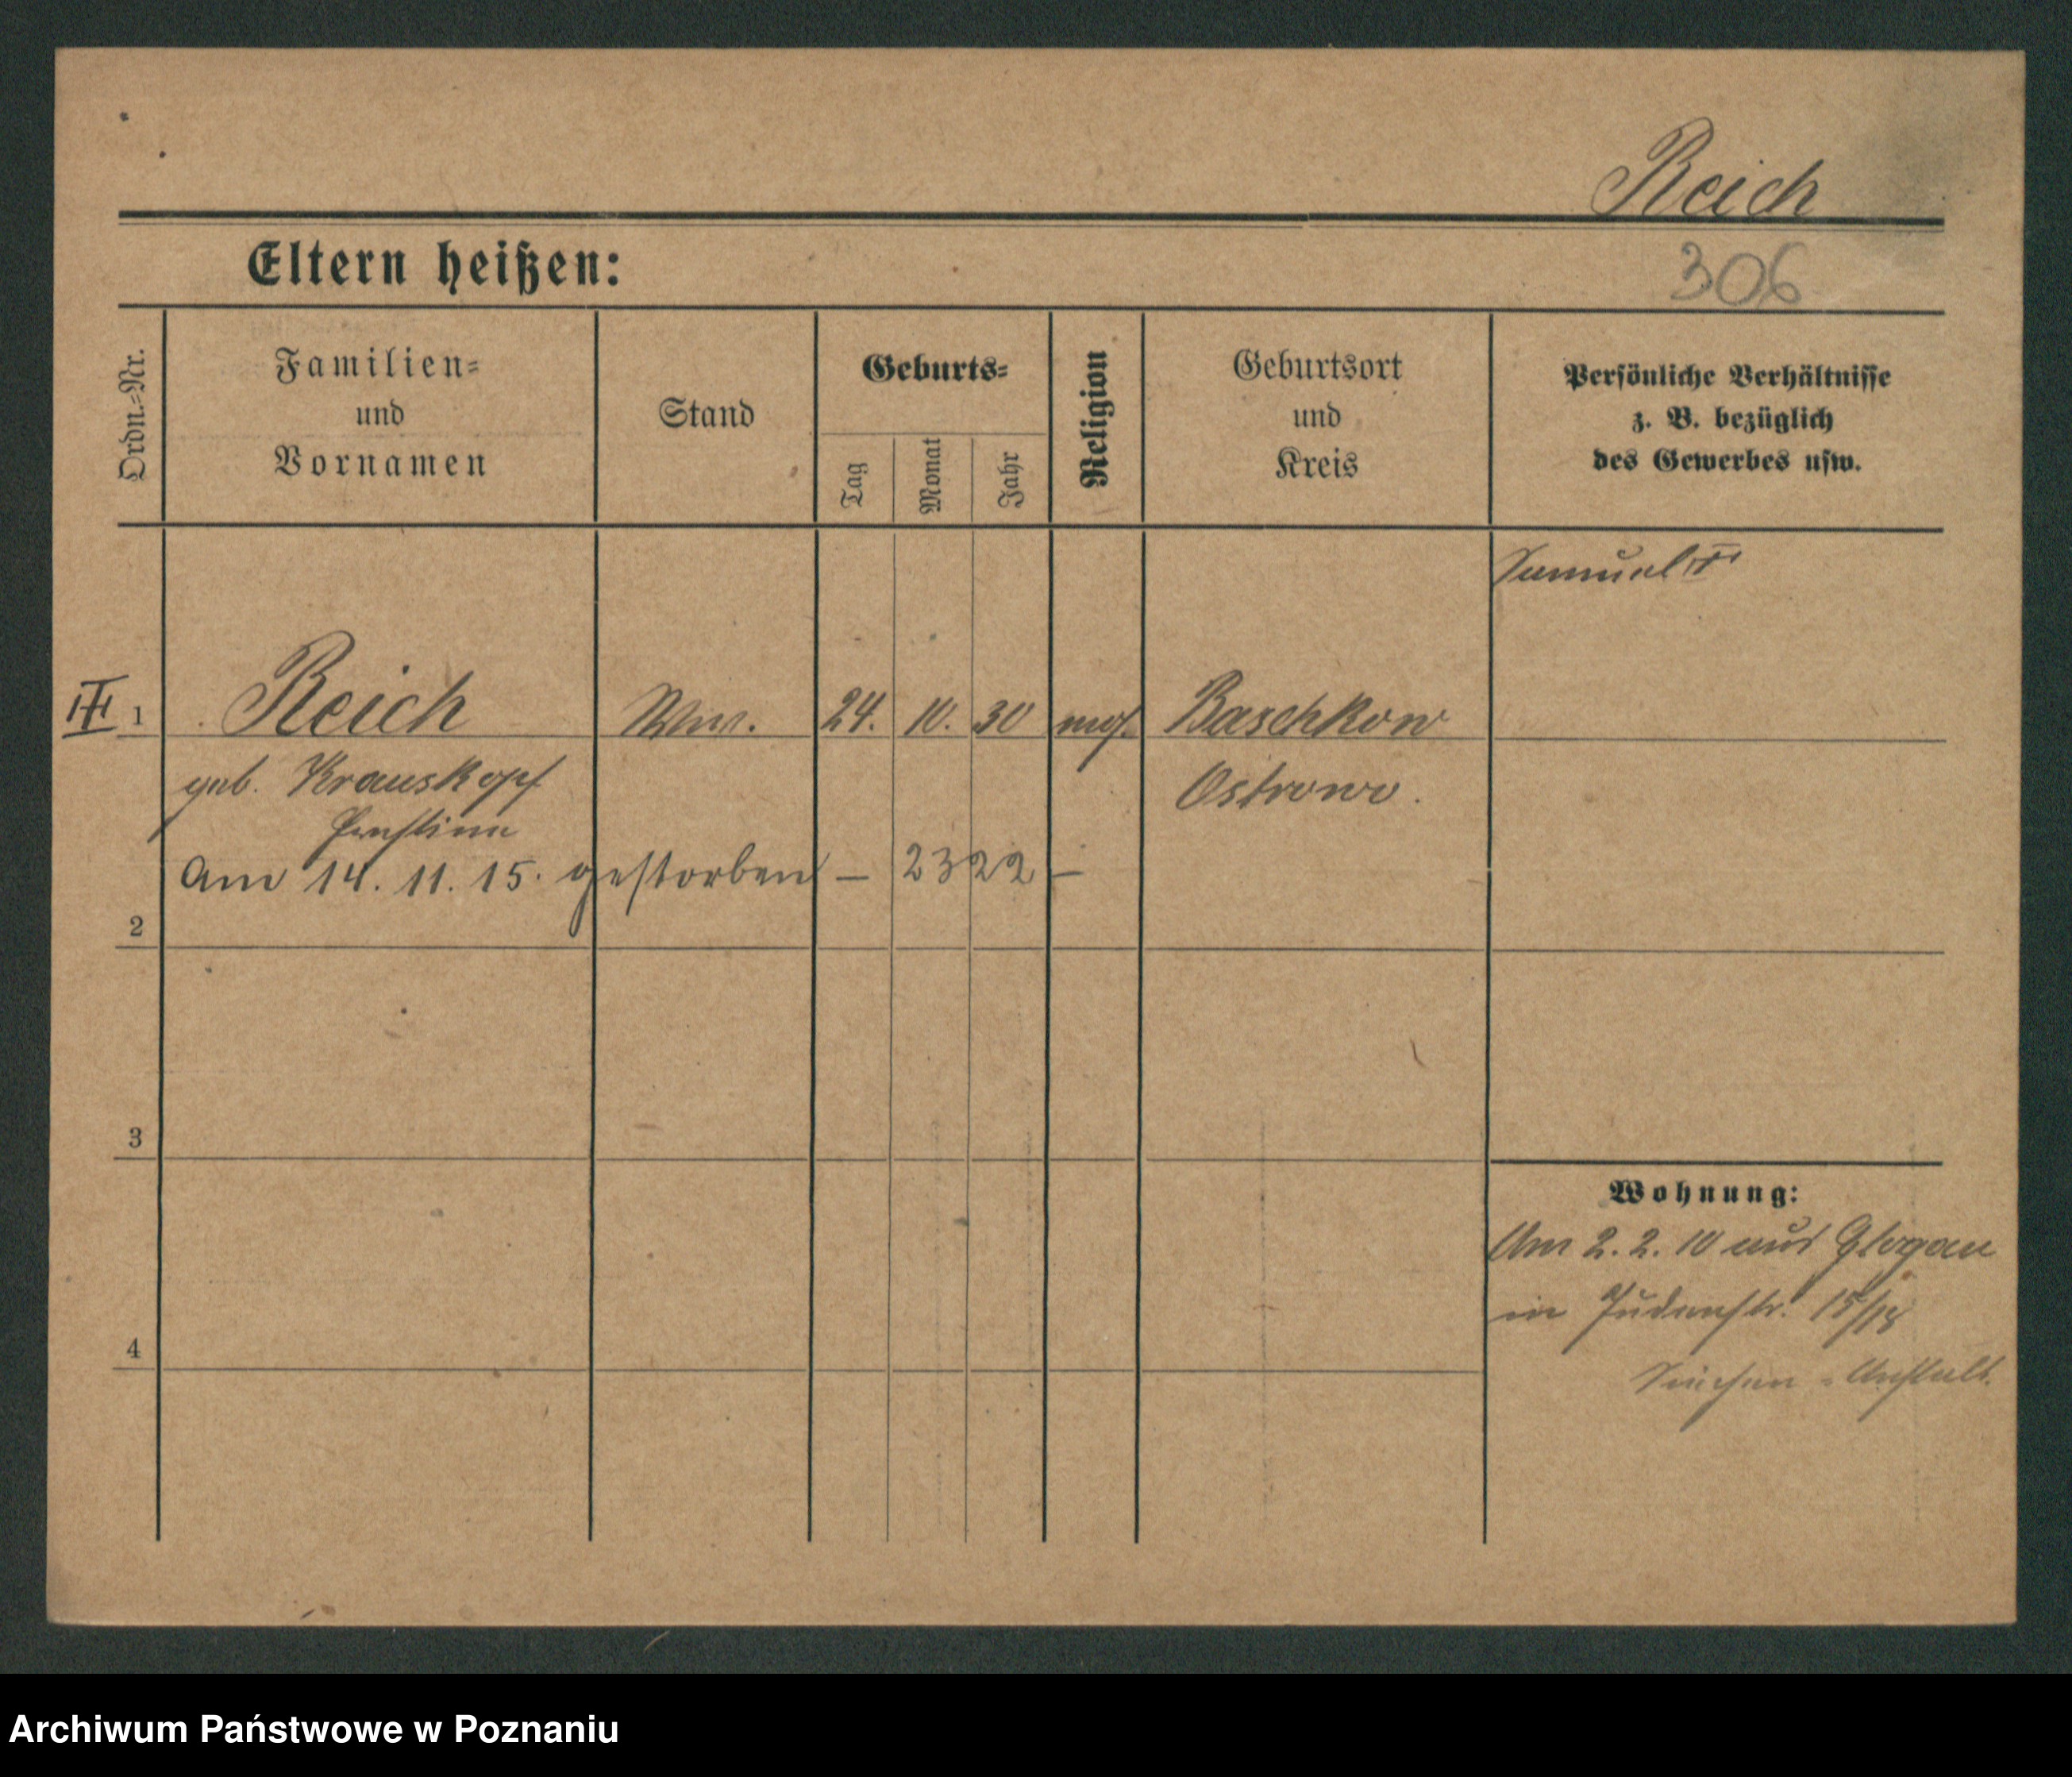 Reich
Eltern heißen:
306
Ordn.-Nr.
Familien-
und
Vornamen
Stand
Geburts-
Tag
Monat
Jahr
Religion
Geburtsort
und
Kreis
Persönliche Verhältnisse
z. B. bezüglich
des Gewerbes usw.
Samuel
III 1 Reich Wwe. 24. 10. 30 mos. Baschkow
geb. Krauskopf Ostrowo.
Ernstine
Am 14. 11. 15. gestorben – 2322 –
2
3
Wohnung:
Am 2. 2. 10 aus Glogau
in Judenstr. 15/18
4
Siechen-Anstalt.
Archiwum Państwowe w Poznaniu